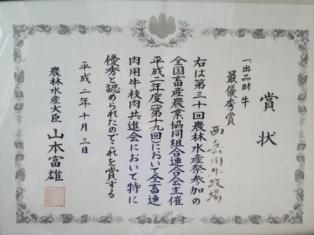 賞状
一、出品財 牛
最優秀賞
西岳肉牛牧場
右は第三十回農林水産祭参加の
全国畜産農業協同組合連合会主催
平成二年度(第十九回)において全畜連
肉用牛枝肉共進会において特に
優秀と認められたのでこれを賞する
平成二年十月三日
農林水産大臣 山本富雄